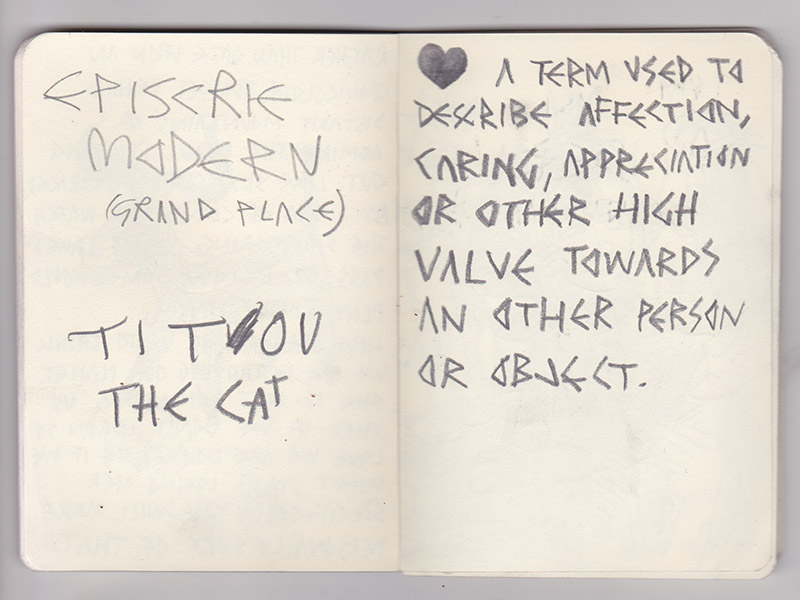 EPISCRIE
MODERN
(GRAND PLACE)
TI TOU
THE CAT
A TERM USED TO
DESCRIBE AFFECTION,
CARING, APPRECIATION
OR OTHER HIGH
VALUE TOWARDS
AN OTHER PERSON
OR OBJECT.